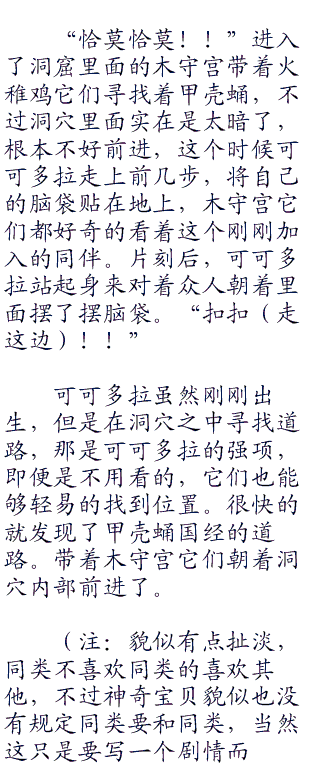 “恰莫恰莫！！”进入
了洞窟里面的木守宫带着火
稚鸡它们寻找着甲壳蛹，不
过洞穴里面实在是太暗了，
根本不好前进，这个时候可
可多拉走上前几步，将自己
的脑袋贴在地上，木守宫它
们都好奇的看着这个刚刚加
入的同伴。片刻后，可可多
拉站起身来对着众人朝着里
面摆了摆脑袋。“扣扣（走
这边）！！”
可可多拉虽然刚刚出
生，但是在洞穴之中寻找道
路，那是可可多拉的强项，
即便是不用看的，它们也能
够轻易的找到位置。很快的
就发现了甲壳蛹国经的道
路。带着木守宫它们朝着洞
穴内部前进了。
（注：貌似有点扯淡，
同类不喜欢同类的喜欢其
他，不过神奇宝贝貌似也没
有规定同类要和同类，当然
这只是要写一个剧情而